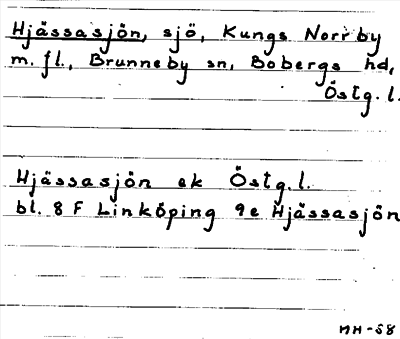 Hjässasjön, sjö, Kungs Norrby
m.fl., Brunneby sn, Bobergs hd,
Östg.l.
Hjässasjön ek Östg.l.
bl. 8 F Linköping 9e Hjässasjön
MH-58